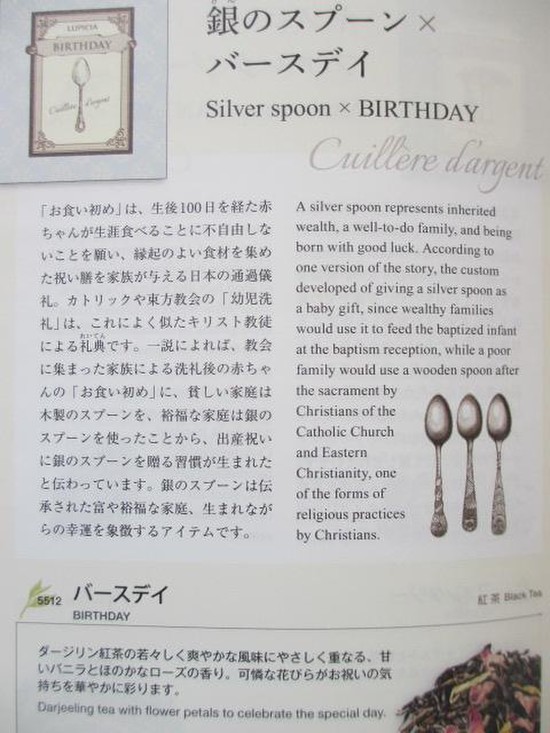 LUPICIA
BIRTHDAY
Cuillère d'argent
銀のスプーン×
バースデイ
Silver spoon × BIRTHDAY
Cuillère d'argent
「お食い初め」は、生後100日を経た赤
ちゃんが生涯食べることに不自由しな
いことを願い、縁起のよい食材を集め
た祝い膳を家族が与える日本の通過儀
礼。カトリックや東方教会の「幼児洗
礼」は、これによく似たキリスト教徒
による礼典です。一説によれば、教会
に集まった家族による洗礼後の赤ちゃ
んの「お食い初め」に、貧しい家庭は
木製のスプーンを、裕福な家庭は銀の
スプーンを使ったことから、出産祝い
に銀のスプーンを贈る習慣が生まれた
と伝わっています。銀のスプーンは伝
承された富や裕福な家庭、生まれなが
らの幸運を象徴するアイテムです。
A silver spoon represents inherited
wealth, a well-to-do family, and being
born with good luck. According to
one version of the story, the custom
developed of giving a silver spoon as
a baby gift, since wealthy families
would use it to feed the baptized infant
at the baptism reception, while a poor
family would use a wooden spoon after
the sacrament by
Christians of the
Catholic Church
and Eastern
Christianity, one
of the forms of
religious practices
by Christians.
5512 バースデイ
BIRTHDAY
紅茶 Black Tea
ダージリン紅茶の若々しく爽やかな風味にやさしく重なる、甘
いバニラとほのかなローズの香り。可憐な花びらがお祝いの気
持ちを華やかに彩ります。
Darjeeling tea with flower petals to celebrate the special day.